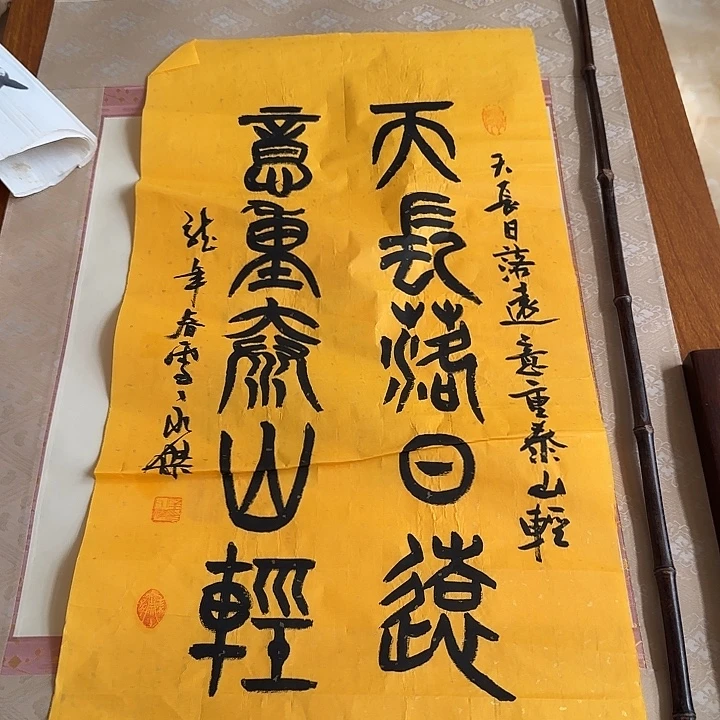 天長日落遠意重泰山輕
天長落日遠
意重泰山輕
龍年春雪永傑